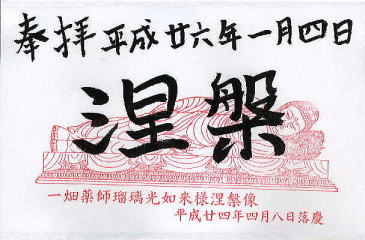 奉拝 平成廿六年一月四日
涅槃
一畑薬師瑠璃光如来様涅槃像
平成廿四年四月八日落慶